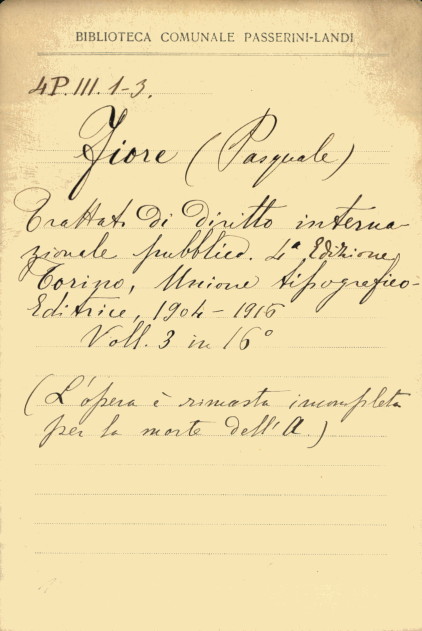 BIBLIOTECA COMUNALE PASSERINI-LANDI
4P.III.1-3.
Fiore (Pasquale)
Trattato di diritto interna-
zionale pubblico. 4ª Edizione
Torino, Unione tipografico-
Editrice, 1904-1916
Voll. 3 in 16°
(L'opera è rimasta incompleta
per la morte dell'A.)